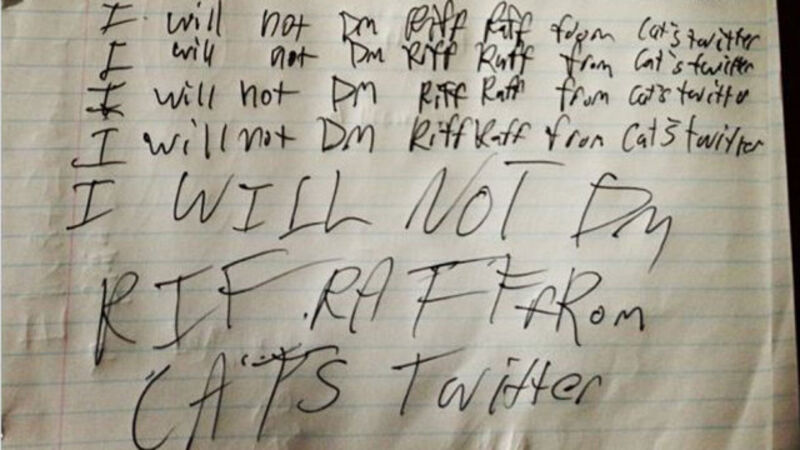 I will not Dm Riff Raff from Cat's twitter
I will not Dm Riff Raff from Cat's twitter
I will not DM Riff Raff from Cat's twitter
I will not DM Riff Raff from Cat's twitter
I WILL NOT Dm
RIFF RAFF fRom
CATS Twitter